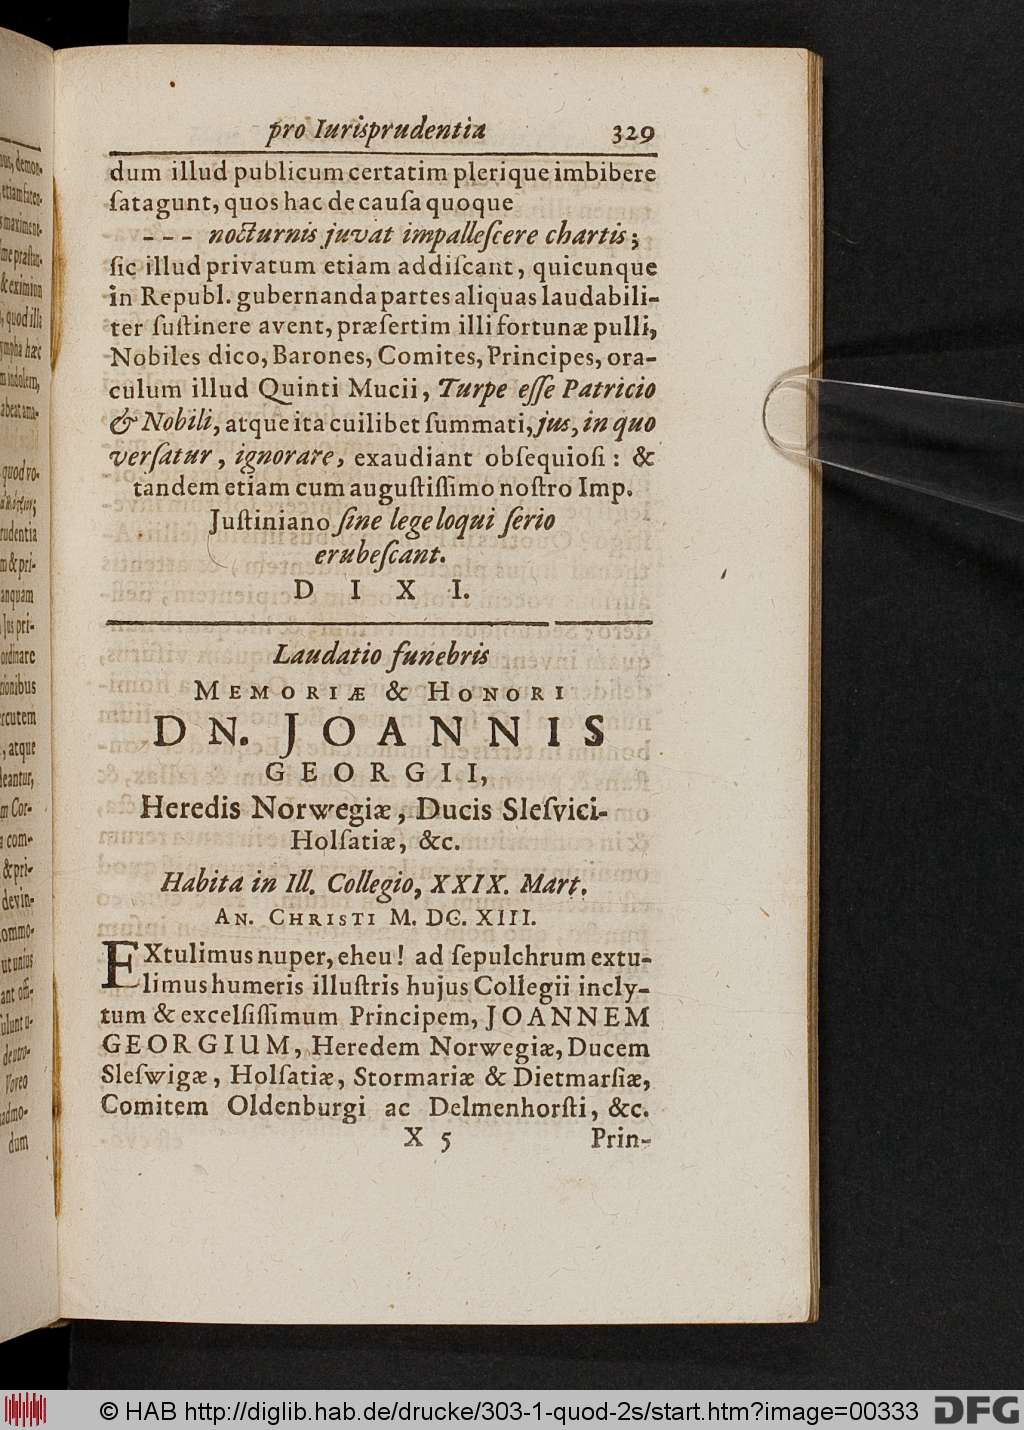 pro Iurisprudentia 329
dum illud publicum certatim plerique imbibere
ſatagunt, quos hac de cauſa quoque
--- nocturnis juvat impalleſcere chartis;
ſic illud privatum etiam addiſcant, quicunque
in Republ. gubernanda partes aliquas laudabili-
ter ſuſtinere avent, præſertim illi fortunæ pulli,
Nobiles dico, Barones, Comites, Principes, ora-
culum illud Quinti Mucii, Turpe eſſe Patricio
& Nobili, atque ita cuilibet ſummati, jus, in quo
verſatur, ignorare, exaudiant obſequioſi: &
tandem etiam cum auguſtiſſimo noſtro Imp.
Juſtiniano ſine lege loqui ſerio
erubeſcant.
D I X I.
Laudatio funebris
MEMORIÆ & HONORI
DN. JOANNIS
GEORGII,
Heredis Norwegiæ, Ducis Sleſvici-
Holſatiæ, &c.
Habita in Ill. Collegio, XXIX. Mart.
AN. CHRISTI M. DC. XIII.
EXtulimus nuper, eheu! ad ſepulchrum extu-
limus humeris illuſtris hujus Collegii incly-
tum & excelſiſſimum Principem, JOANNEM
GEORGIUM, Heredem Norwegiæ, Ducem
Sleſwigæ, Holſatiæ, Stormariæ & Dietmarſiæ,
Comitem Oldenburgi ac Delmenhorſti, &c.
X 5 Prin-
demon-
quod vo-
rudentia
m & pri-
anquam
Jus pri-
ordinare
, atque
leantur,
m Cor-
a com-
& pri-
devin-
ommo-
ut unius
ant offi-
admo-
dum
© HAB http://diglib.hab.de/drucke/303-1-quod-2s/start.htm?image=00333
DFG